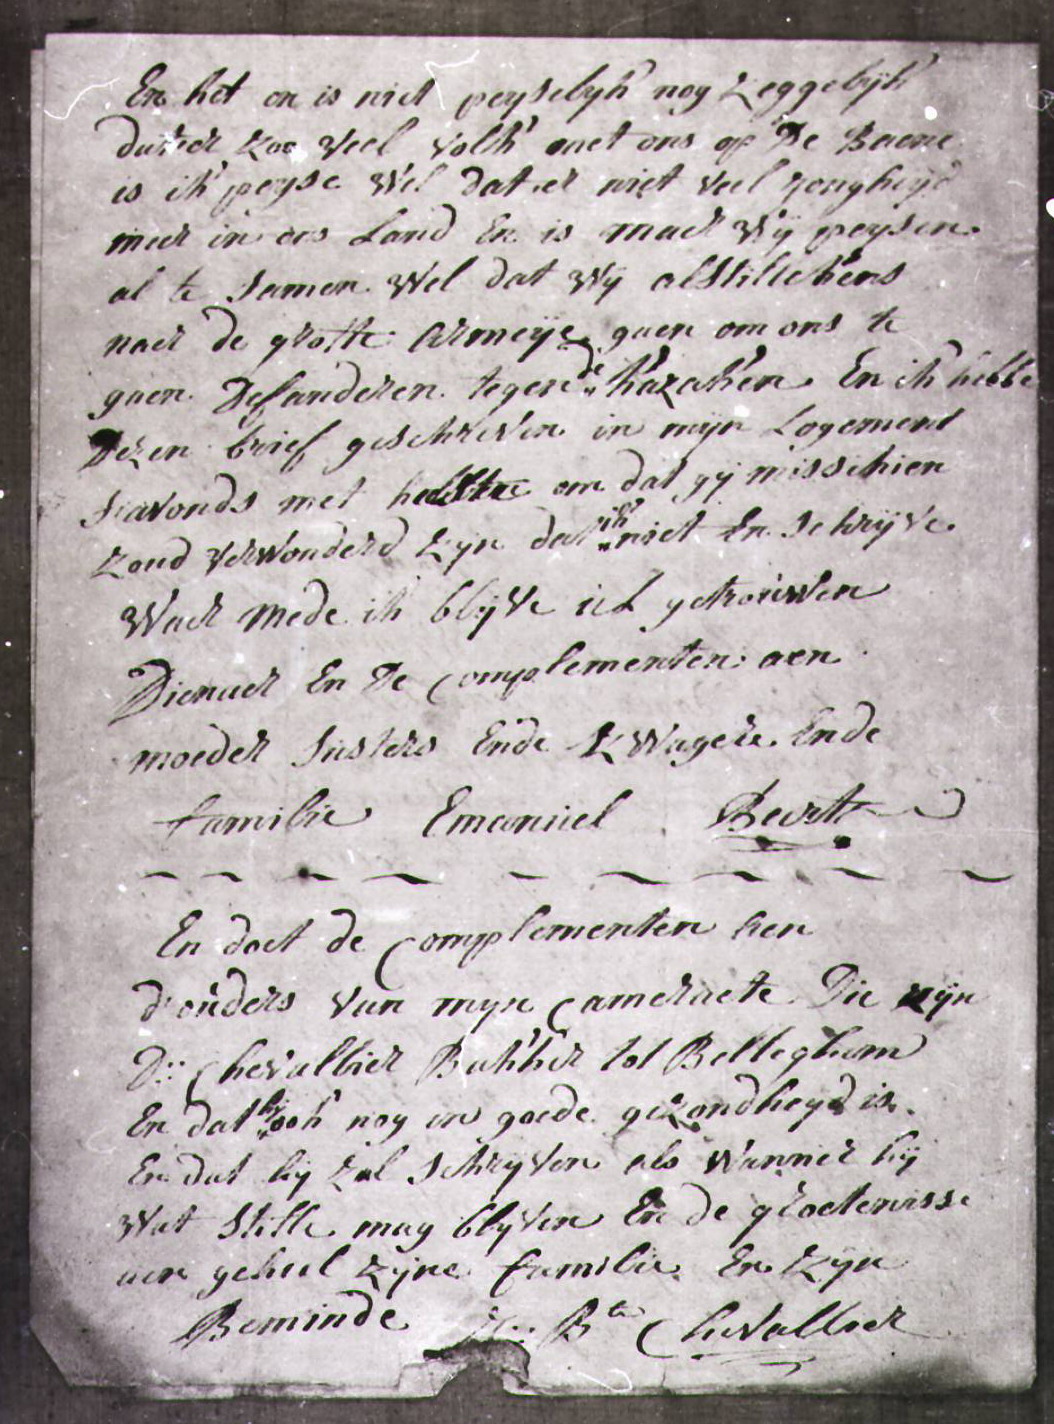 En het en is niet peyselyk nog zeggelyk
datter zoo veel volk met ons op De Baene
is ik peyse Wel dat er niet veel jongheyd
meer in ons Land En is maer Wij peysen
al te samen Wel dat Wij alstillekens
naer de grotte Armeije gaen om ons te
gaen Defanderen tegen de kazaken. En ik hebbe
Dezen brief geschreven in mijn Logement
savonds met om dat gij misschien
zoud verwonderd zijn dat ik niet En schrijve.
Waer Mede ik blijve UL getrouwen
Dienaer En De Complementen aen
moeder susters Ende Zwagers Ende
familie Emanuel
En doet de Complementen aen
d'ouders van mijn Cameraete Die zijn
D: Chevallier Bakker tot Belleghem
En dat hij ook nog in goede gezondheyd is.
En dat hij zal schrijven als Wanner hij
Wat stille mag blijven En de groetenisse
aen geheel zijne familie En zijn
Beminde B Chevallier